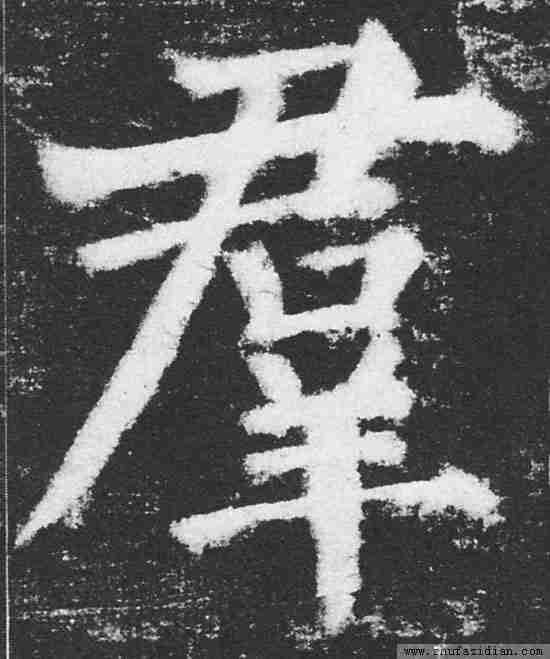 羣
www.shufazidian.com